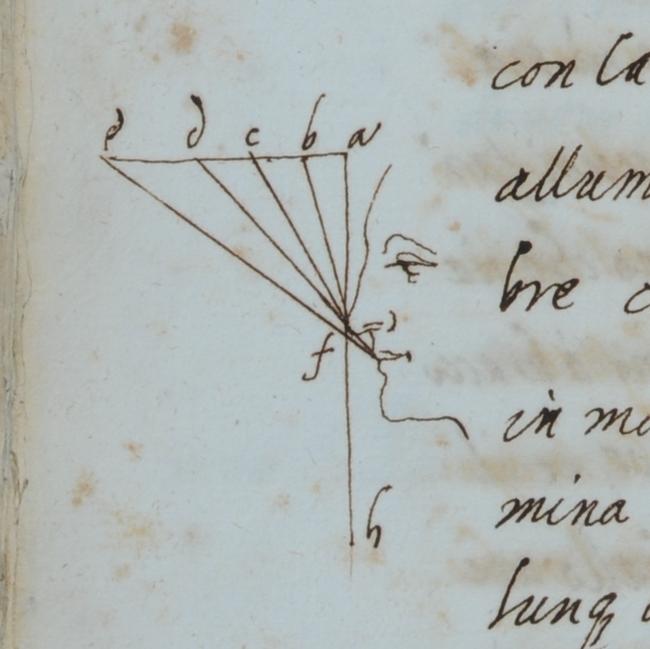 e d c b a
con la
allum
bre c
f
in mo
mina
h
lunq